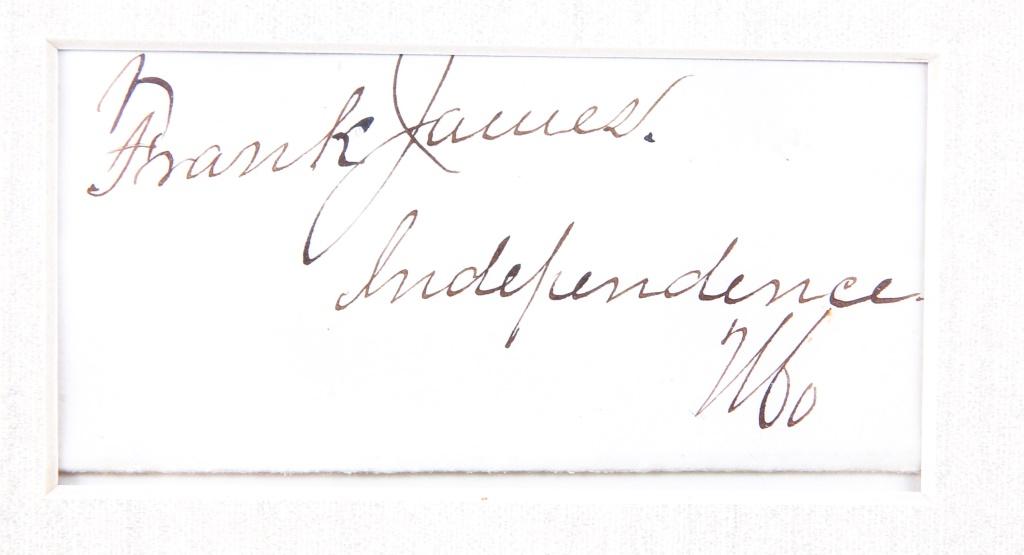 Frank James.
Independence.
Mo